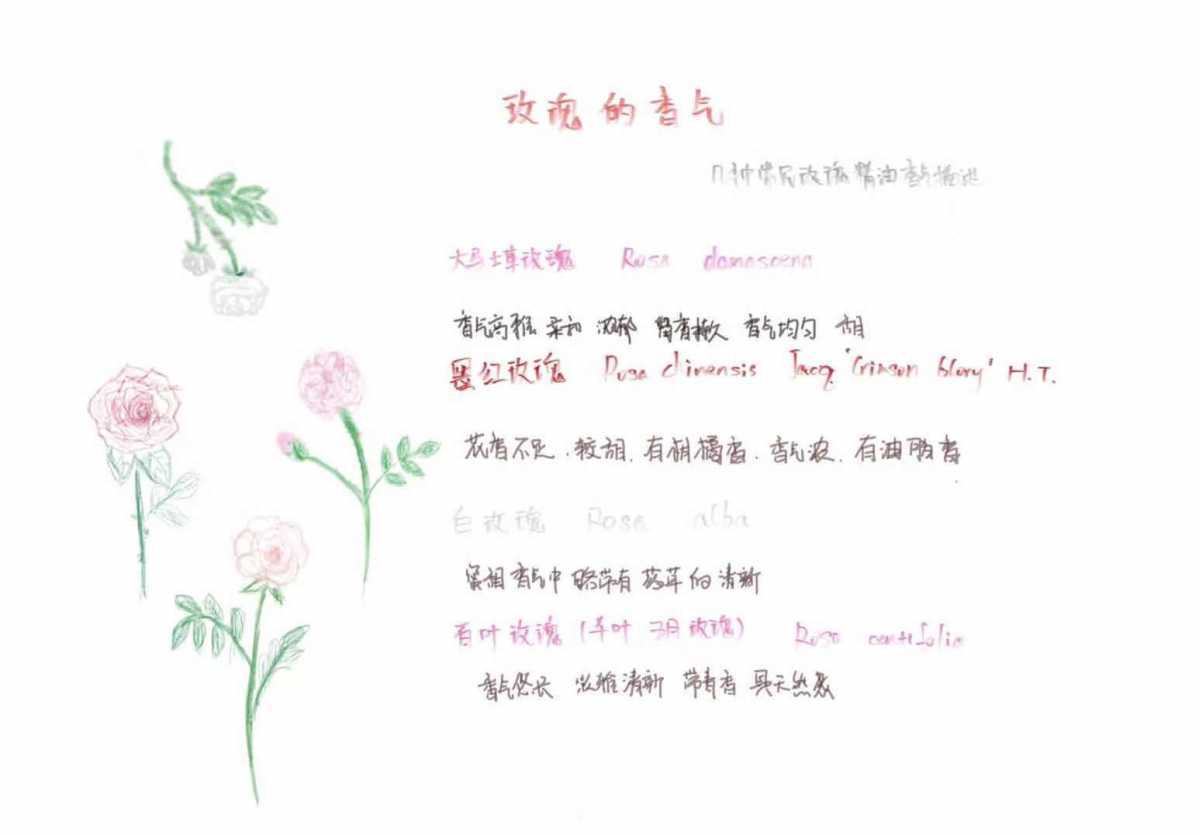 玫瑰的香气
几种常见玫瑰精油香气描述
大马士革玫瑰 Rosa damascena
香气高雅 柔和 浓郁 留香持久 香气均匀 甜
墨红玫瑰 Rosa chinensis Jacq 'Crimson Glory' H.T.
花香不足.较甜.有柑橘香.香气浓.有油脂香
白玫瑰 Rosa alba
香气中略带有 的清新
百叶玫瑰(千叶 玫瑰) Rosa centifolia
香气悠长 清新 带青香 具天然感